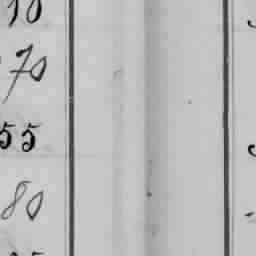 10
70
55
80